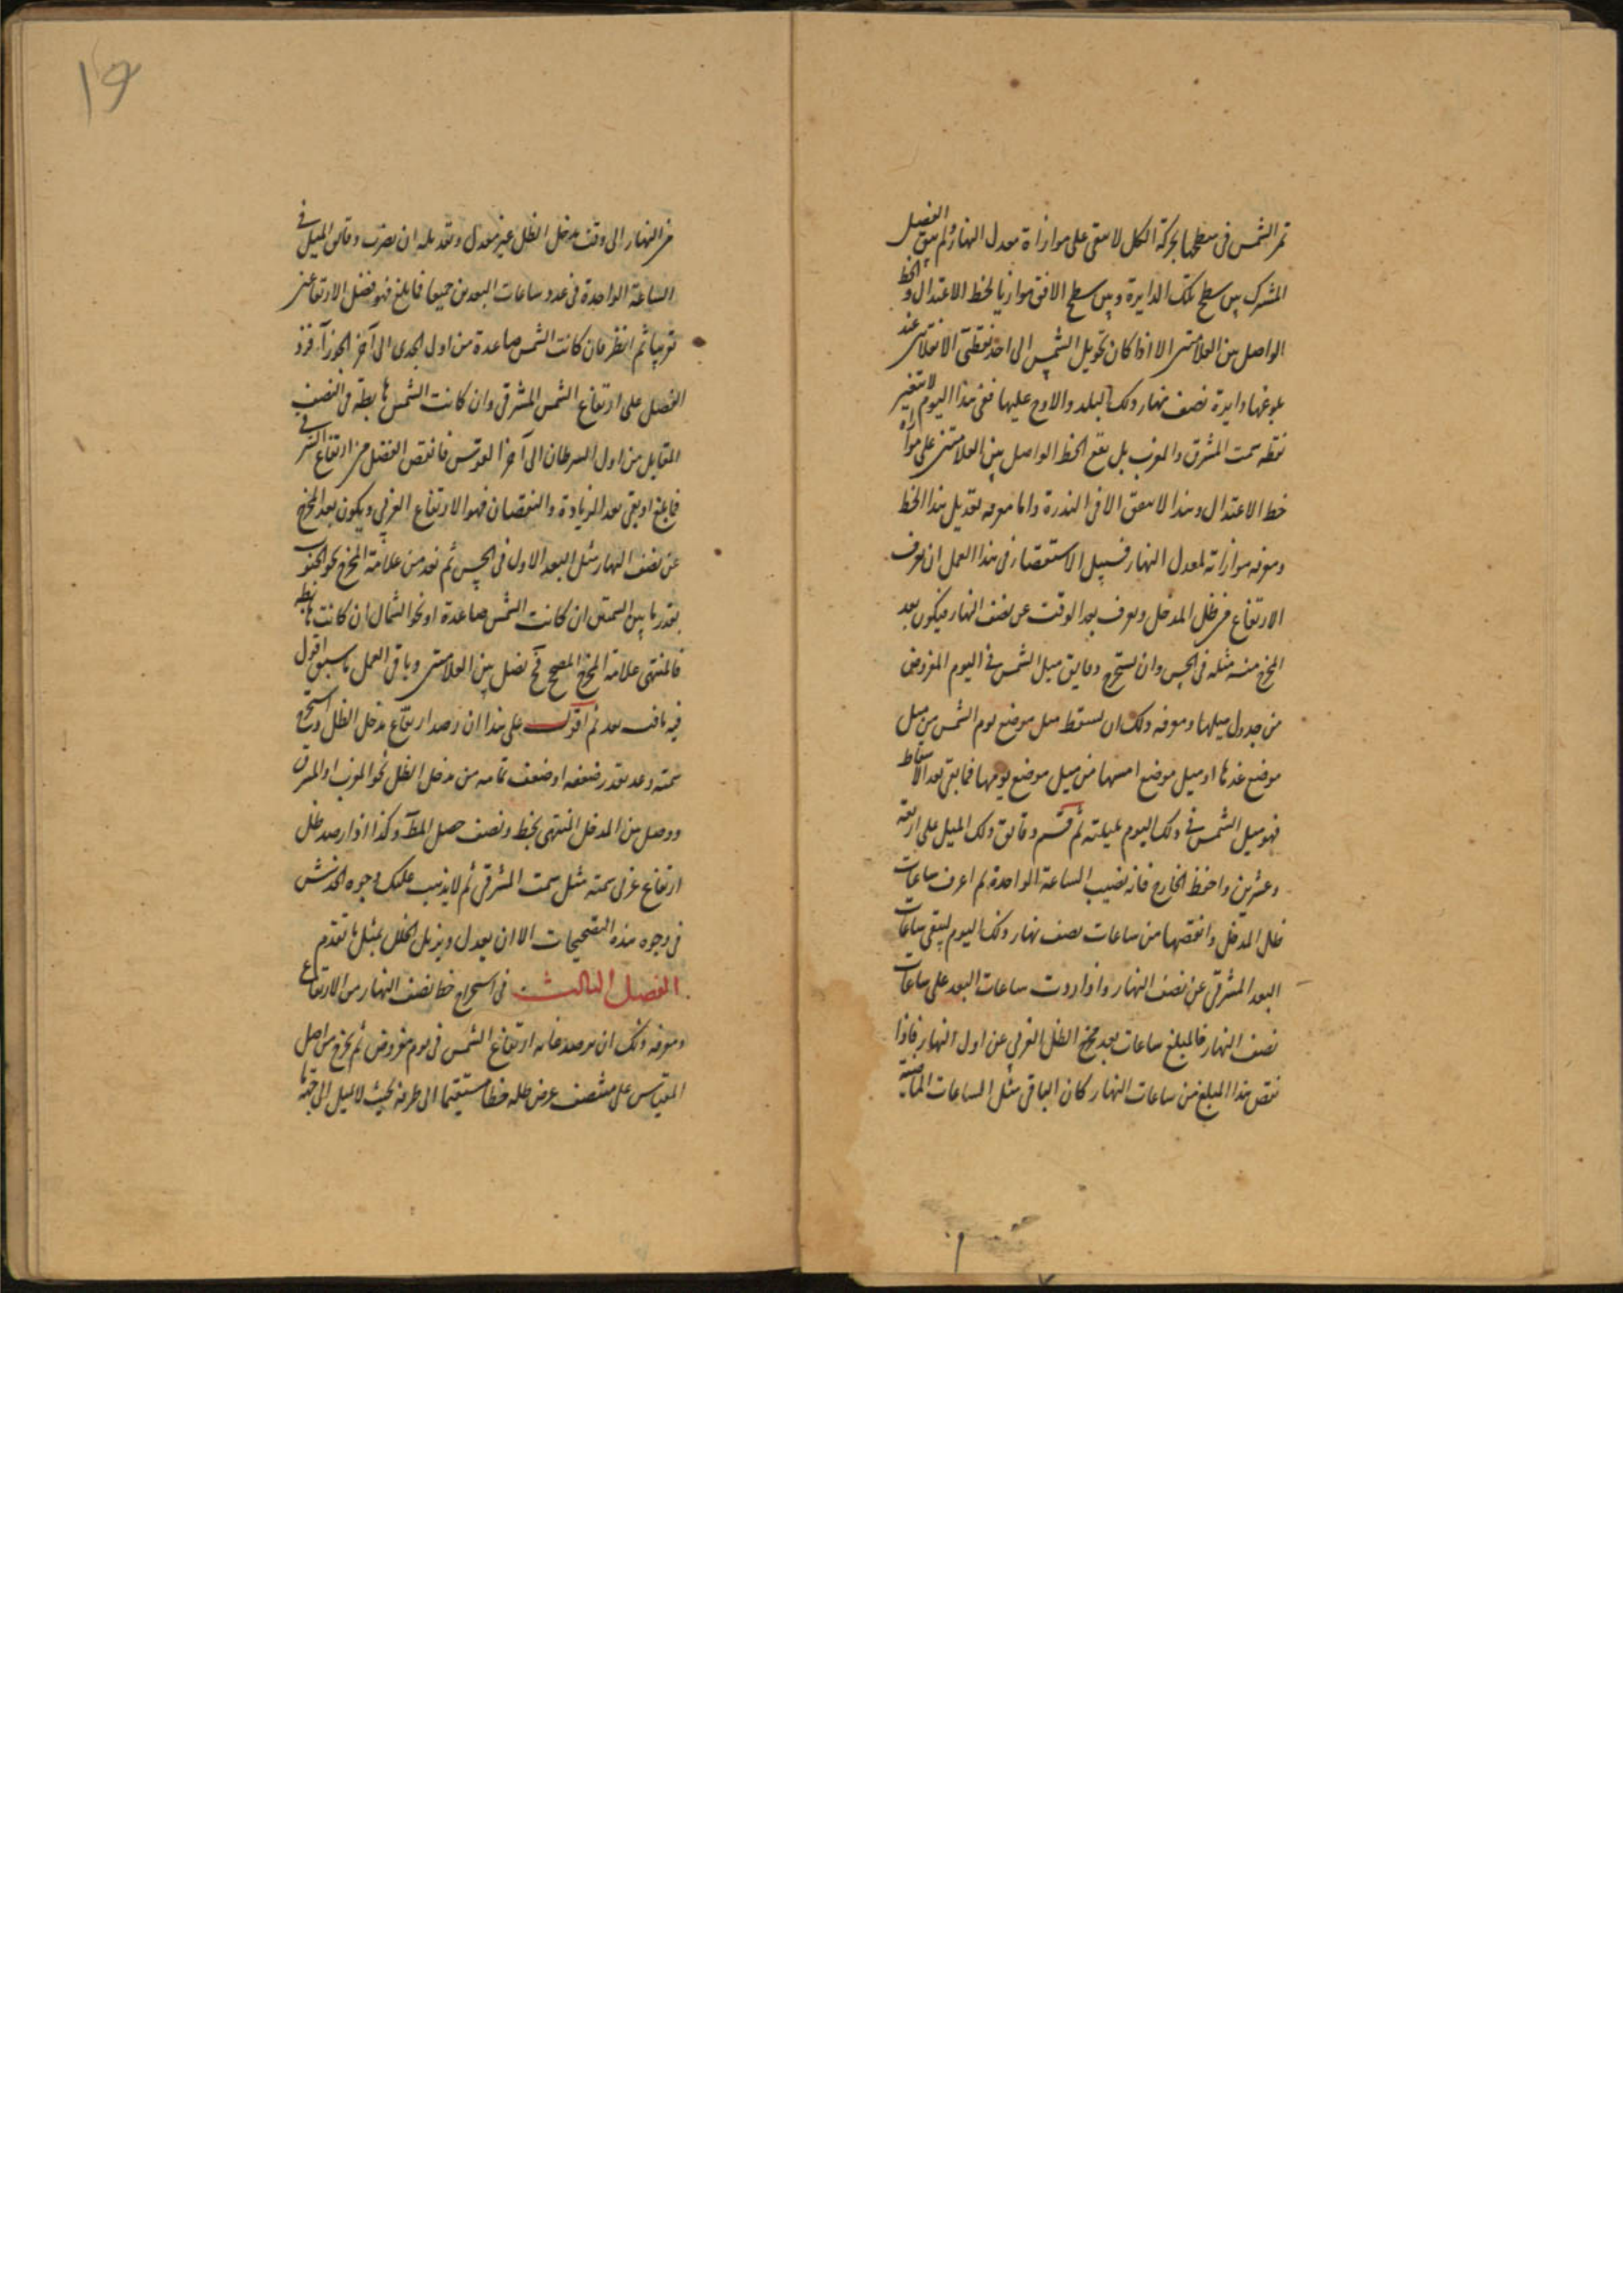 تمر الشمس فى سطحها بحركة الكل لا تبقى على موازاة معدل النهار ولم يبق الفصل
المشترك بين سطح تلك الدايرة وبين سطح الافق موازيا لخط الاعتدال والخط
الواصل بين العلامتين الا اذا كان تحويل الشمس الى احد نقطتى الانقلابين عند
بلوغها دايرة نصف نهار ذلك البلد والاوج عليها ففى هذا اليوم لا تتغير
نقطه سمت المشرق والمغرب بل يقع الخط الواصل بين العلامتين على موازاة
خط الاعتدال وهذا لا يتفق الا فى الندرة واما معرفه تعديل هذا الخط
ومعرفه موازاته لمعدل النهار فسبيل الاستقصاء فى هذا العمل ان نعرف
الارتفاع من ظل المدخل ونعرف بعد الوقت عن نصف النهار فيكون بعد
المخرج منه مثله فى الحس وان نستخرج دقايق ميل الشمس فى اليوم المفروض
من جدول ميلها ومعرفه ذلك ان يسقط ميل موضع يوم الشمس من ميل
موضع غدها او ميل موضع امسها من ميل موضع يومها فما بقى بعد الاسقاط
فهو ميل الشمس فى ذلك اليوم بليلته ثم قسم دقايق ذلك الميل على اربعة
وعشرين واحفظ الخارج فانه نصيب الساعة الواحدة ثم اعرف ساعات
ظل المدخل وانقصها من ساعات نصف نهار ذلك اليوم ليبقى ساعات
البعد المشرقى عن نصف النهار واذا زدت ساعات البعد على ساعات
نصف النهار فالمبلغ ساعات بعد مخرج الظل الغربى عن اول النهار فاذا
نقص هذا المبلغ من ساعات النهار كان الباقى مثل الساعات الماضية
١٩
من النهار الى وقت مدخل الظل غير معدل وتعديله ان نضرب دقايق الميل فى
الساعة الواحدة فى عدد ساعات البعدين جميعا فما بلغ فهو فضل الارتفاعين
تقريبا ثم انظر فان كانت الشمس صاعدة من اول الجدى الى آخر الجوزآ فزد
الفضل على ارتفاع الشمس المشرقى وان كانت الشمس هابطة فى النصف
المقابل من اول السرطان الى آخر القوس فانقص الفضل من ارتفاع الشرقى
فما بلغ او بقى بعد الزيادة والنقصان فهو الارتفاع الغربى ويكون بعد المخرج
عن نصف النهار مثل البعد الاول فى الحس ثم نعد من علامة المخرج نحو الجنوب
بقدر ما بين السمتين ان كانت الشمس صاعدة او نحو الشمال ان كانت هابطه
فالمنتهى علامة المخرج المصحح فح نصل بين العلامتين وباقى العمل ما سبق اقول
فيه ما فيه بعد ثم اقول على هذا ان رصد ارتفاع مدخل الظل واستخرج
سمته وعد بقدر ضعفه او ضعف تمامه من مدخل الظل نحو المغرب او المشرق
ووصل بين المدخل المنتهى بخط ونصف حصل المط وكذا اذا رصد ظل
ارتفاع غربى سمته مثل سمت المشرقى ثم لا يذهب عليك وجوه الخدش
فى وجوه هذه التصحيحات الا ان يعدل ويزيل الخلل بمثل ما تقدم
الفصل الثالث فى استخراج خط نصف النهار من الارتفاع
ومعرفه ذلك ان نرصد غايه ارتفاع الشمس فى يوم مفروض ثم نخرج من اصل
المقياس على منتصف عرض ظله خطا مستقيما الى طرفه بحيث لا يميل الى جهة